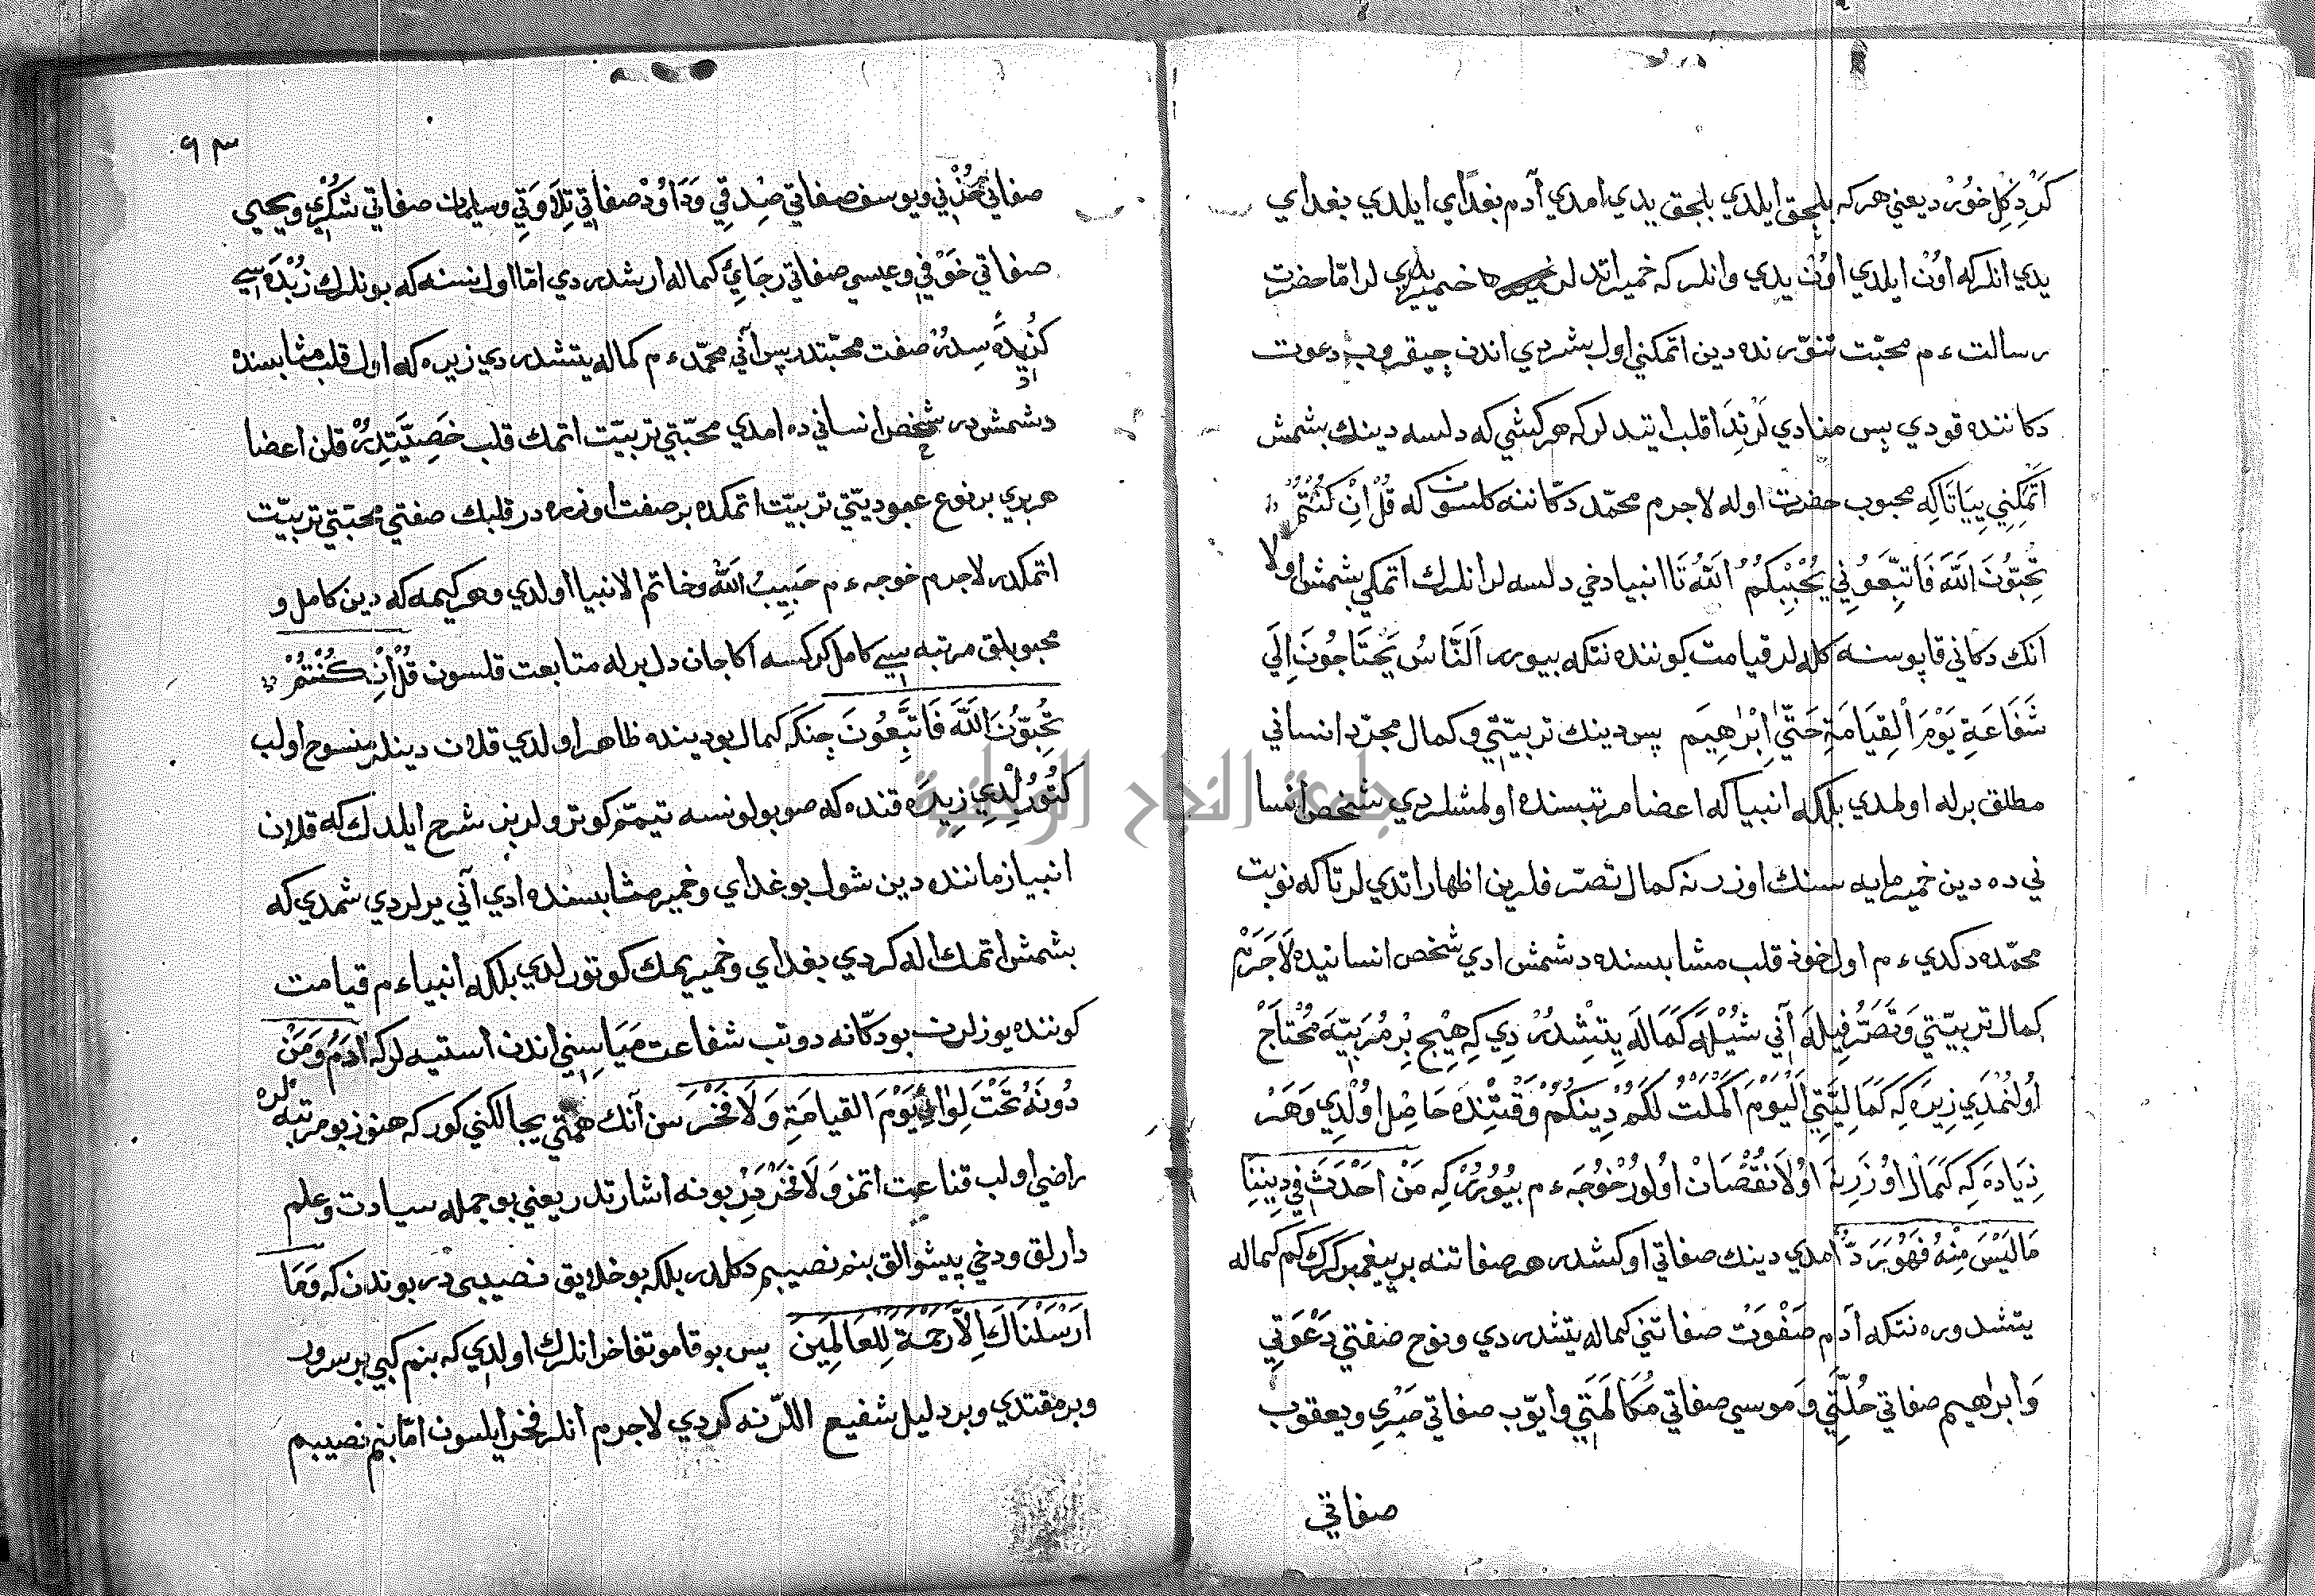 كرد كل خورد يعني هر كه بلجق ايلدي بلجق يدي امدي آدم بغداي ايلدي بغداي
يدي انلر كه اون ايلدي اون يدي وانلر كه خمير اتدلر خمير يدي لر اما حضرت
رسالت ءم محبت تنورنده دين اتمكني اول بشردي اندن چيقروب دعوت
دكاننده قودي پس منادي لرندا قلب ايتدلر كه هر كشي كه دلسه دينك بشمش
اتمكني ييا تا كه محبوب حضرت اوله لاجرم محمد دكاننه كلسون كه قُلْ اِنْ كُنْتُمْ
تُحِبّوُنَ اللّهَ فَاتّبِعُوني يُحْبِبْكُمُ اللّهُ تا انبيا دخي دلسه لر انلرك اتمكي بشمش اولا
انك دكاني قاپوسنه كله لر قيامت كوننده نتكه بيورر اَلنَّاسُ يَحْتَاجُونَ اِلَي
شَفَاعَةِ يَوْمَ الْقِيَامَةِ حَتّي اِبْرٰهيَم پس دينك تربيتي وكمال مجرد انساني
مطلق برله اولمدي بلكه انبيا كه اعضا مرتبسنده اولمشلردي شخص انسا
ني ده دين خمير مايه سنك اوزرنه كمال تصرفلرين اظهار اتدي لر تا كه نوبت
محمده دكدي ءم اول خوذ قلب مشابسنده دشمش ادي شخص انسانيده لاَجَرَمْ
كمال تربيتي وَتصرفيله آني شُيْلَه كَمَالَه يتشدردي كه هيچ بِر مُرَبّيَه مُحْتاجْ
اولنمدي زيرَه كه كَمَالِيَّتي اَلْيَوْمَ اَكْمَلْتُ لَكُمْ دِينَكُمْ وَقتنده حَاصِل اوُلْدي وَهَرْ
زيَادَه كه كَمَالْ اوُزَرِنَه اوُلاَ نُقْصَانْ اوُلوُرْ خوُجَه ءم بيُورُرْ كه مَنْ اَحْدَثَ في دِيننِاَ
مَالَيْسَ مِنْهُ فَهُوَ رَدٌّ امدي دينك صفاتي اوكشدر هر صفاتنه بر پيغمبر كرك كم كماله
يتشدوره نتكه آدم صَفْوَتْ صفاتني كماله يتشدردي ونوح صفتني دَعْوَتي
وَابرٰهيم صفاتي خُلَّتي وَموسي صفاتي مُكَالَمَتي وايّوب صفاتي صَبْرِي ويعقوب
صفاتي
٩٣
صفاتي حُزْني ويوسف صفاتي صِدقي وَدَاوُدْ صفاتي تِلاَوَتي وسليمان صفاتي شُكْرِي ويحيي
صفاتي خَوْفي وعيسي صفاتي رجَائي كماله ارشدردي امّا اول نسنه كه بونلرك زُبْدَه سي
كُزِيدَه سِدُرْ صفت محبتدر پس آني محمّد ءم كماله يتشدردي زيره كه اول قلب مثابسنده
دشمش در شخص انساني ده امدي محبّتي تربيّت اتمك قلب خَصِيّتِدِرُرْ قلن اعضا
هر بري بر نوع عبوديّتي تربيّت اتمكده بر صفت اوزره در قلبك صفتي محبّتي تربيّت
اتمكدر لاجرم خوجه ءم حَبِيبُ اللّه وخاتم الانبيا اولدي وهر كيمه كه دين كامل و
محبوبلق مرتبه سي كامل كركسه اكا جان دل برله متابعت قلسون قُلْ اِنْ كُنْتُمْ
تُحِبّوُنَ اللّهَ فَاتّبِعُونَ چنكه كمال بو دينده ظاهر اولدي قلان دينلر منسوخ اولب
كُتُورُلْدِي زيرَه قنده كه صو بولونسه تيمّم كوترولر بز شرح ايلدك كه قلان
انبيا زماننده دين شول بوغداي وخمير مشابسنده ادي آني يرلردي شمدي كه
بشمش اتمك اله كردي بغداي وخمير يمك كوتورلدي بلكه انبياء م قيامت
كوننده يوزلرن بو دكّانه دوتب شفاعت مَيَاسِني اندن استيه لر كه ادَمُ وَمَنْ
دُونَهُ تَحْتَ لِوَائي يَوْمَ القيامَةِ وَلَا فَخْرَ سن آنك همّتي يجالكني كور كه هنوز بو مرتبه لره
راضي اولب قناعت اتمز وَلَا فَخْرَ دَرْ بونه اشارتدر يعني بو جمله سيادت وعلم
دارلق ودخي پيشوالق بنم نصيبم دكلدر بلكه بو خلايق نصيبي در بوندن كه وَمَا
اَرْسَلْنَاكَ اِلاَّ رَحْمَةً لِلْعَالَمِينَ پس بو قامو تفاخر انلرك اولدي كه بنم كبي بر سرور
وبر مقتدي وبر دليل شفيع اللرنه كردي لاجرم انلر فخر ايلسون امّا بنم نصيبم
جامعة النجاح الوطنية